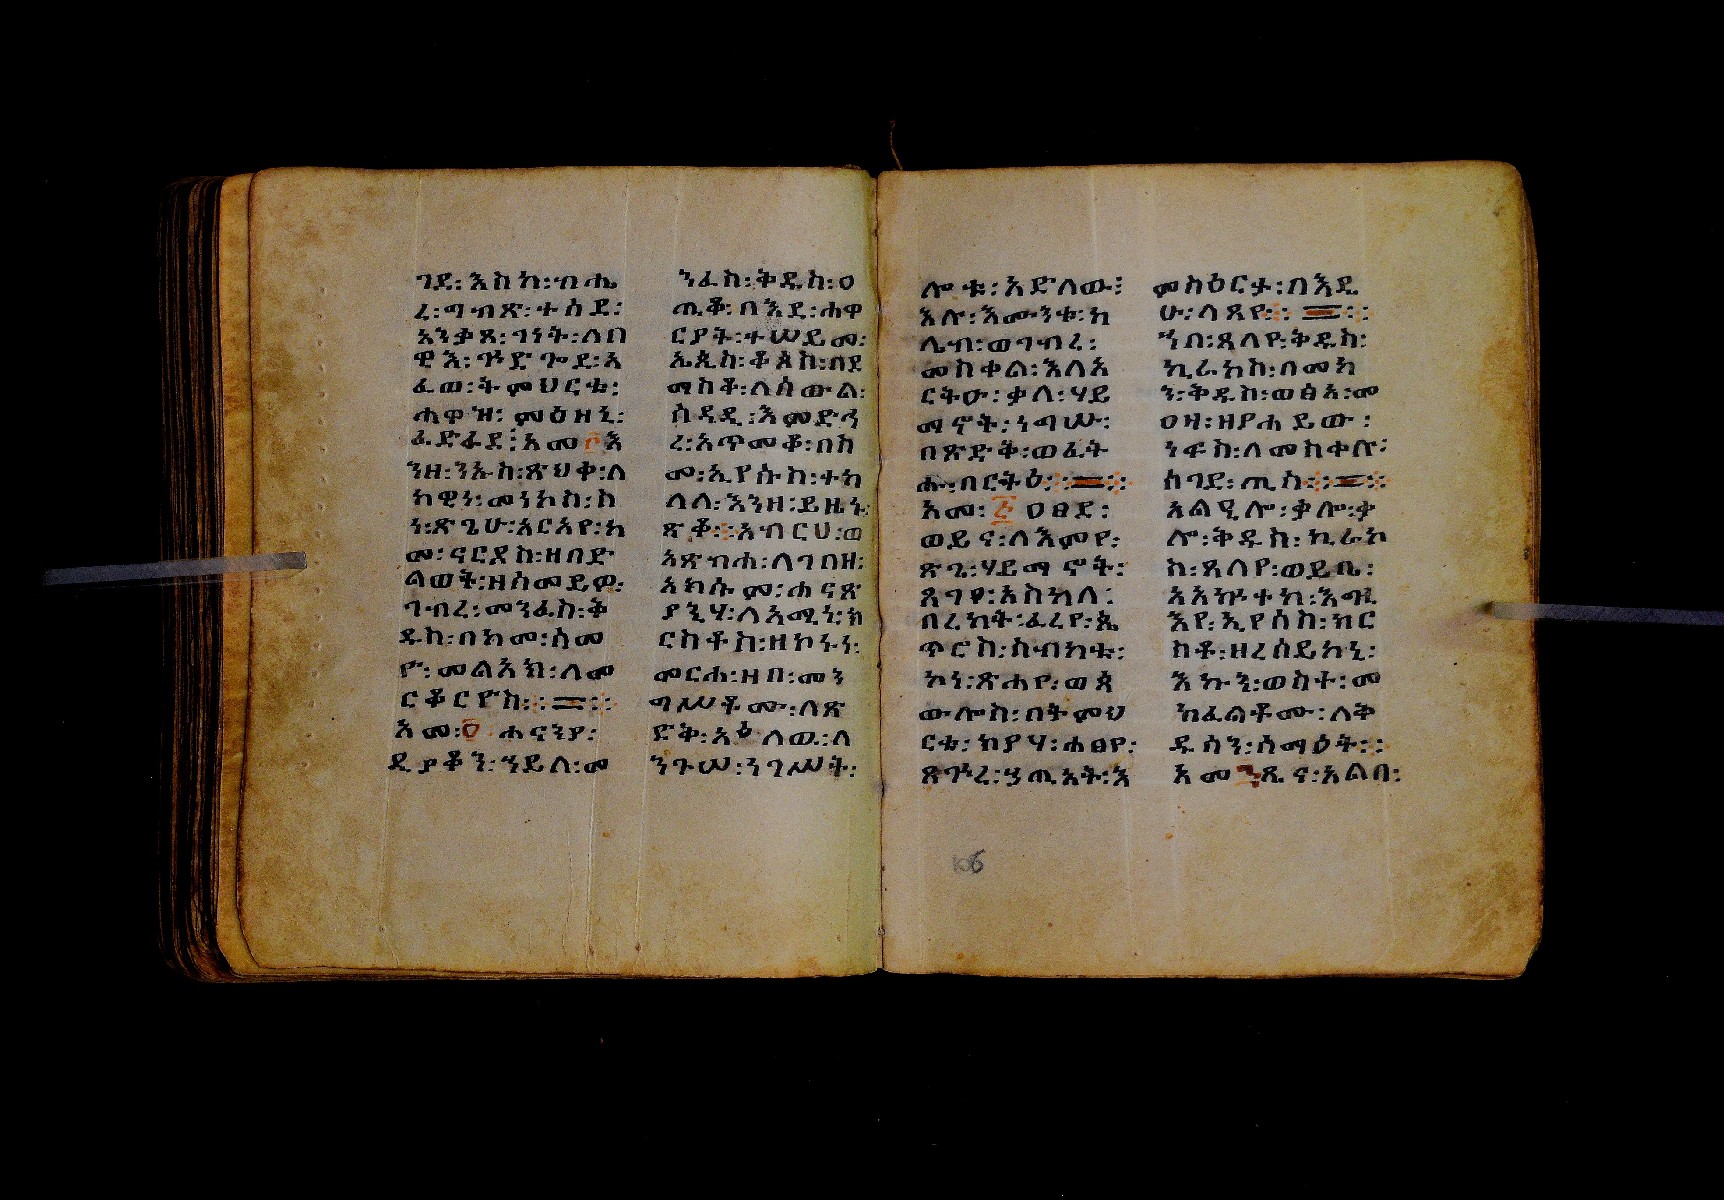 ገደ፡እስከ፡ብሔ
ረ፡ግብጽ፡ተሰደ፡
አንቃጸ፡ገነት፡ለበ
ዊእ፡ጕድጐደ፡አ
ፈወ፡ትምህርቱ፡
ሐዋዝ፡ምዕዘኒ፡
ፈድፈደ፡አመ፲እ
ንዘ፡ንኡስ፡ጽህቀ፡ለ
ከዊነ፡መነኮስ፡ከ
ነ፡ጽጌሁ፡አርአየ፡ከ
መ፡ናርዶስ፡ዘበድ
ልወት፡ዘስመይዎ፡
ገብረ፡መንፈስ፡ቅ
ዱስ፡በከመ፡ሰመ
ዮ፡መልአክ፡ለመ
ርቆርዮስ፡፡
አመ፡፬ ሐናንያ፡
ዲያቆን፡ኀይለ፡መ
ንፈስ፡ቅዱስ፡ዐ
ጢቆ፡በእደ፡ሐዋ
ርያት፡ተሠይመ፡
ኤጲስ፡ቆጶስ፡በደ
ማስቆ፡ለሰውል፡
ሰዳዲ፡እመድኅ
ረ፡አጥመቆ፡በስ
መ፡ኢየሱስ፡ተከ
ለለ፡እንዘ፡ይዜኑ፡
ጽቆ፡፡አብርሀ፡ወ
አጽብሐ፡ለገበዘ፡
አክሱም፡ሐናጽ
ያኒሃ፡ለአሚነ፡ክ
ርስቶስ፡ዘኮኑነ፡
መርሐ፡ዘበ፡መን
ግሥቶሙ፡ለጽ
ድቅ፡አፅለዉ፡ለ
ንጉሠ፡ነገሥት፡
ሎቱ፡አድለው፡
እሉ፡እሙንቱ፡ክ
ሌብ፡ወገብረ፡
መስቀል፡እለአ
ርትዑ፡ቃለ፡ሃይ
ማኖት፡ነጋሡ፡
በጽድቅ፡ወፈት
ሑ፡በርትዕ፡፡
አመ፡፭ዐፀደ፡
ወይና፡ለእምየ፡
ጽጌ፡ሃይማኖት፡
ጸግዋ፡አስካለ፡
በረከት፡ፈረየ፡ጴ
ጥሮስ፡ስብከቱ፡
ኮነ፡ጽሐየ፡ወጳ
ውሎስ፡በትምህ
ርቱ፡ከያሃ፡ሐፀየ፡
ጸጕረ፡ኃጢአት፡እ
ምስዕርታ፡በእዴ
ሁ፡ላጸየ፡፡
ኀበ፡ጸለየ፡ቅዱስ፡
ኪራኮስ፡በመካ
ን፡ቅዱስ፡ወፅአ፡መ
ዐዛ፡ዘያሐይው፡
ነፍስ፡ለመስቀሉ፡
ሰገደ፡ጢስ፡፡
አልዒሎ፡ቃሎ፡ቃ
ሎ፡ቅዱስ፡ኪራኮ
ስ፡ጸለየ፡ወይቤ፡
አአኵተከ፡እግዚ
እየ፡ኢየሱስ፡ክር
ስቶ፡ዘረሰይከኒ፡
እኩን፡ወስተ፡መ
ክፈልቶሙ፡ለቅ
ዱሳን፡ሰማዕት፡፡
እመንጺና፡አልቦ፡
106